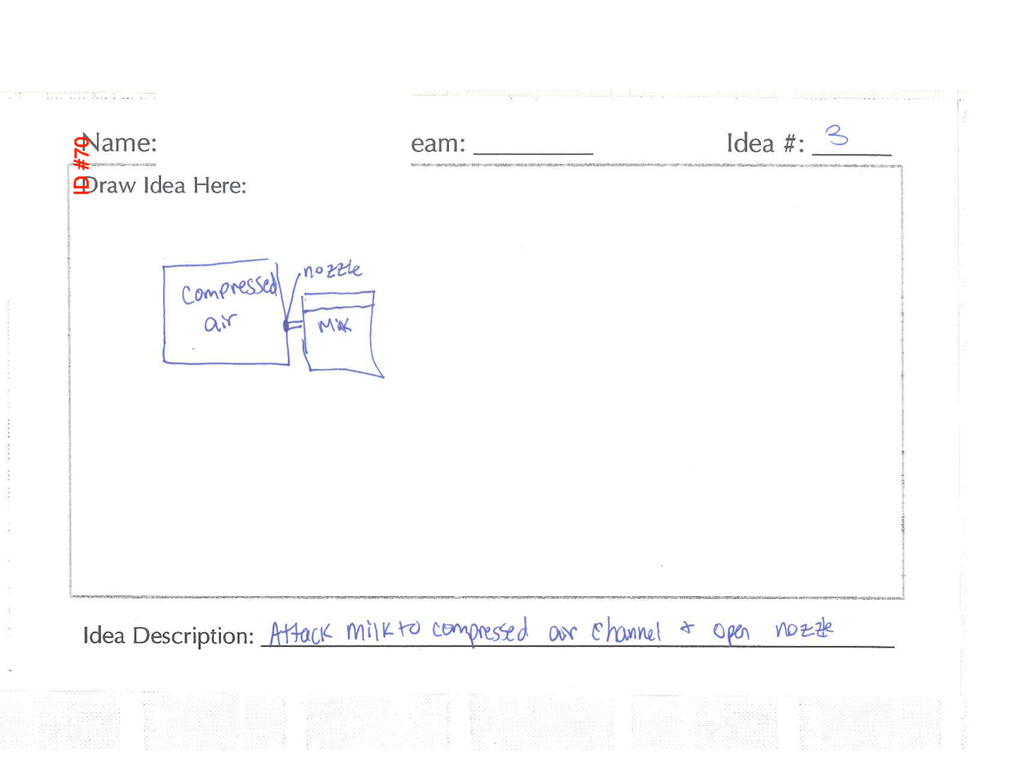 ID #70
Name: eam: Idea #: 3
Draw Idea Here:
nozzle
compressed
air
Milk
Idea Description: Attack milk to compressed air channel + open nozzle